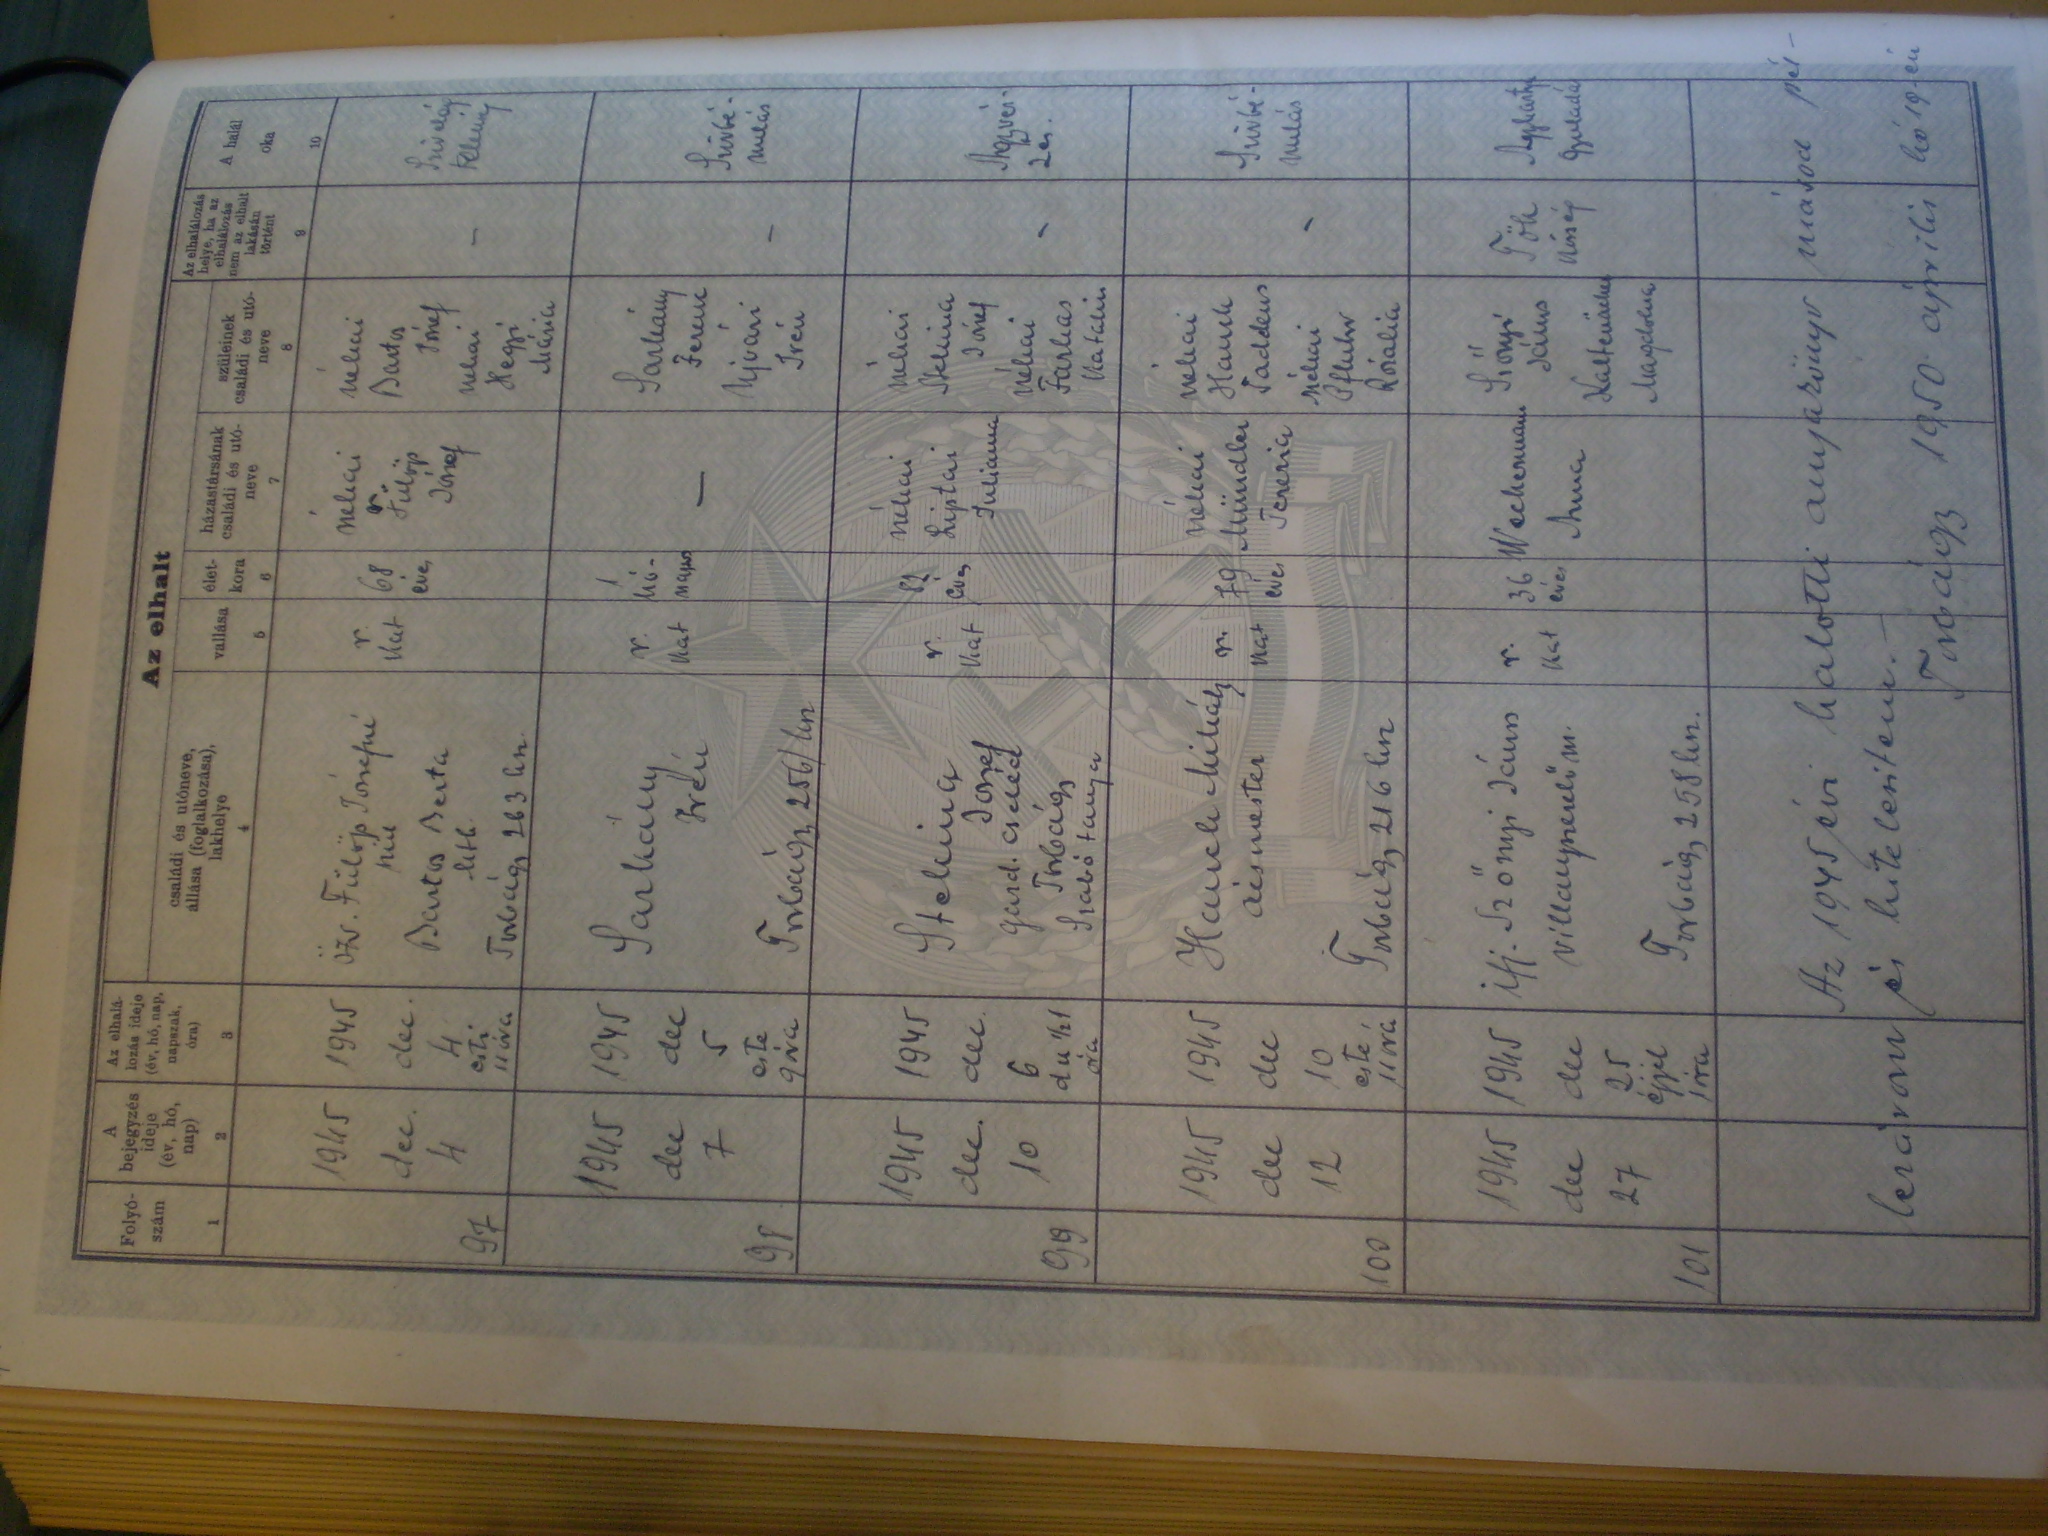 Az elhalt
Folyó-
szám
A
bejegyzés
ideje
(év, hó,
nap)
Az elhalá-
lozás ideje
(év, hó, nap,
napszak,
óra)
családi és utóneve,
állása (foglalkozása),
lakhelye
vallása
élet-
kora
házastársának
családi és utó-
neve
szüleinek
családi és utó-
neve
Az elhalálozás
helye, ha az
elhalálozás
nem az elhalt
lakásán
történt
A halál
oka
1
2
3
4
5
6
7
8
9
10
97
1945
dec.
4
1945
dec.
4
esti
11 óra
özv. Fülöp Józsefné
szül
Bartos Berta
htb.
Torbágy 263 hsz.
r.
kat
68
éves
néhai
Fülöp
József
néhai
Bartos
József
néhai
Hegyi
Mária
–
98
1945
dec
7
1945
dec
5
este
9 óra
Sarkány
Irén
Torbágy, 256/hsz
r.
kat
1
hó-
napos
–
Sarkány
Ferenc
Ujvári
Irén
–
Szívbé-
nulás
99
1945
dec.
10
1945
dec.
6
du 1/21
óra
Steklina
József
gazd. cseléd
Torbágy
Szabótanya
r.
kat
éves
néhai
Liptai
Julianna
néhai
Steklina
József
néhai
Farkas
Katalin
–
Agyvér-
zés.
100
1945
dec
12
1945
dec
10
este
11 óra
Hauck Mihály
ácsmester
Torbágy, 216 hsz
r.
kat
79
éves
néhai
Mündler
Terézia
néhai
Hauck
Taddeus
néhai
Pfluhr
Rozália
–
Szívbé-
nulás
101
1945
dec
27
1945
dec
25
éjjel
1 óra
ifj. Szőnyi János
villanyszerelő m.
Torbágy, 258 hsz.
r.
kat
36
éves
Wechermann
Anna
Szőnyi
János
Kaltenecker
Magdolna
Tök
község
Agyhártya
gyulladás
Az 1945 évi halotti anyakönyv másod pél-
lezárom és hitelesítem. –
Torbágy 1950 április hó 19-én